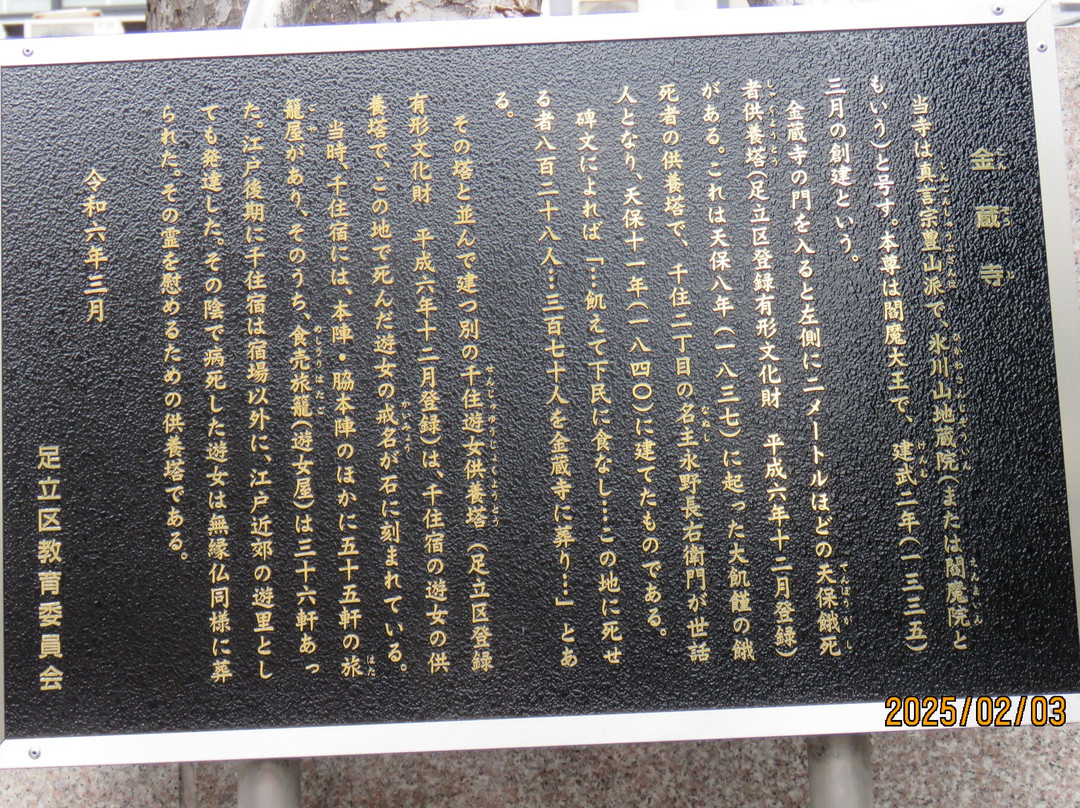 金蔵寺
当寺は真言宗豊山派で、氷川山地蔵院(または閻魔院と
もいう)と号す。本尊は閻魔大王で、建武二年(一三三五)
三月の創建という。
金蔵寺の門を入ると左側に二メートルほどの天保餓死
者供養塔(足立区登録有形文化財 平成六年十二月登録)
がある。これは天保八年(一八三七)に起った大飢饉の餓
死者の供養塔で、千住二丁目の名主永野長右衛門が世話
人となり、天保十一年(一八四〇)に建てたものである。
碑文によれば「…飢えて下民に食なし…この地に死せ
る者八百二十八人…三百七十人を金蔵寺に葬り…」とあ
る。
その塔と並んで建つ別の千住遊女供養塔(足立区登録
有形文化財 平成六年十二月登録)は、千住宿の遊女の供
養塔で、この地で死んだ遊女の戒名が石に刻まれている。
当時、千住宿には、本陣・脇本陣のほかに五十五軒の旅
籠屋があり、そのうち、食売旅籠(遊女屋)は三十六軒あっ
た。江戸後期に千住宿は宿場以外に、江戸近郊の遊里とし
ても発達した。その陰で病死した遊女は無縁仏同様に葬
られた。その霊を慰めるための供養塔である。
令和六年三月
足立区教育委員会
2025/02/03